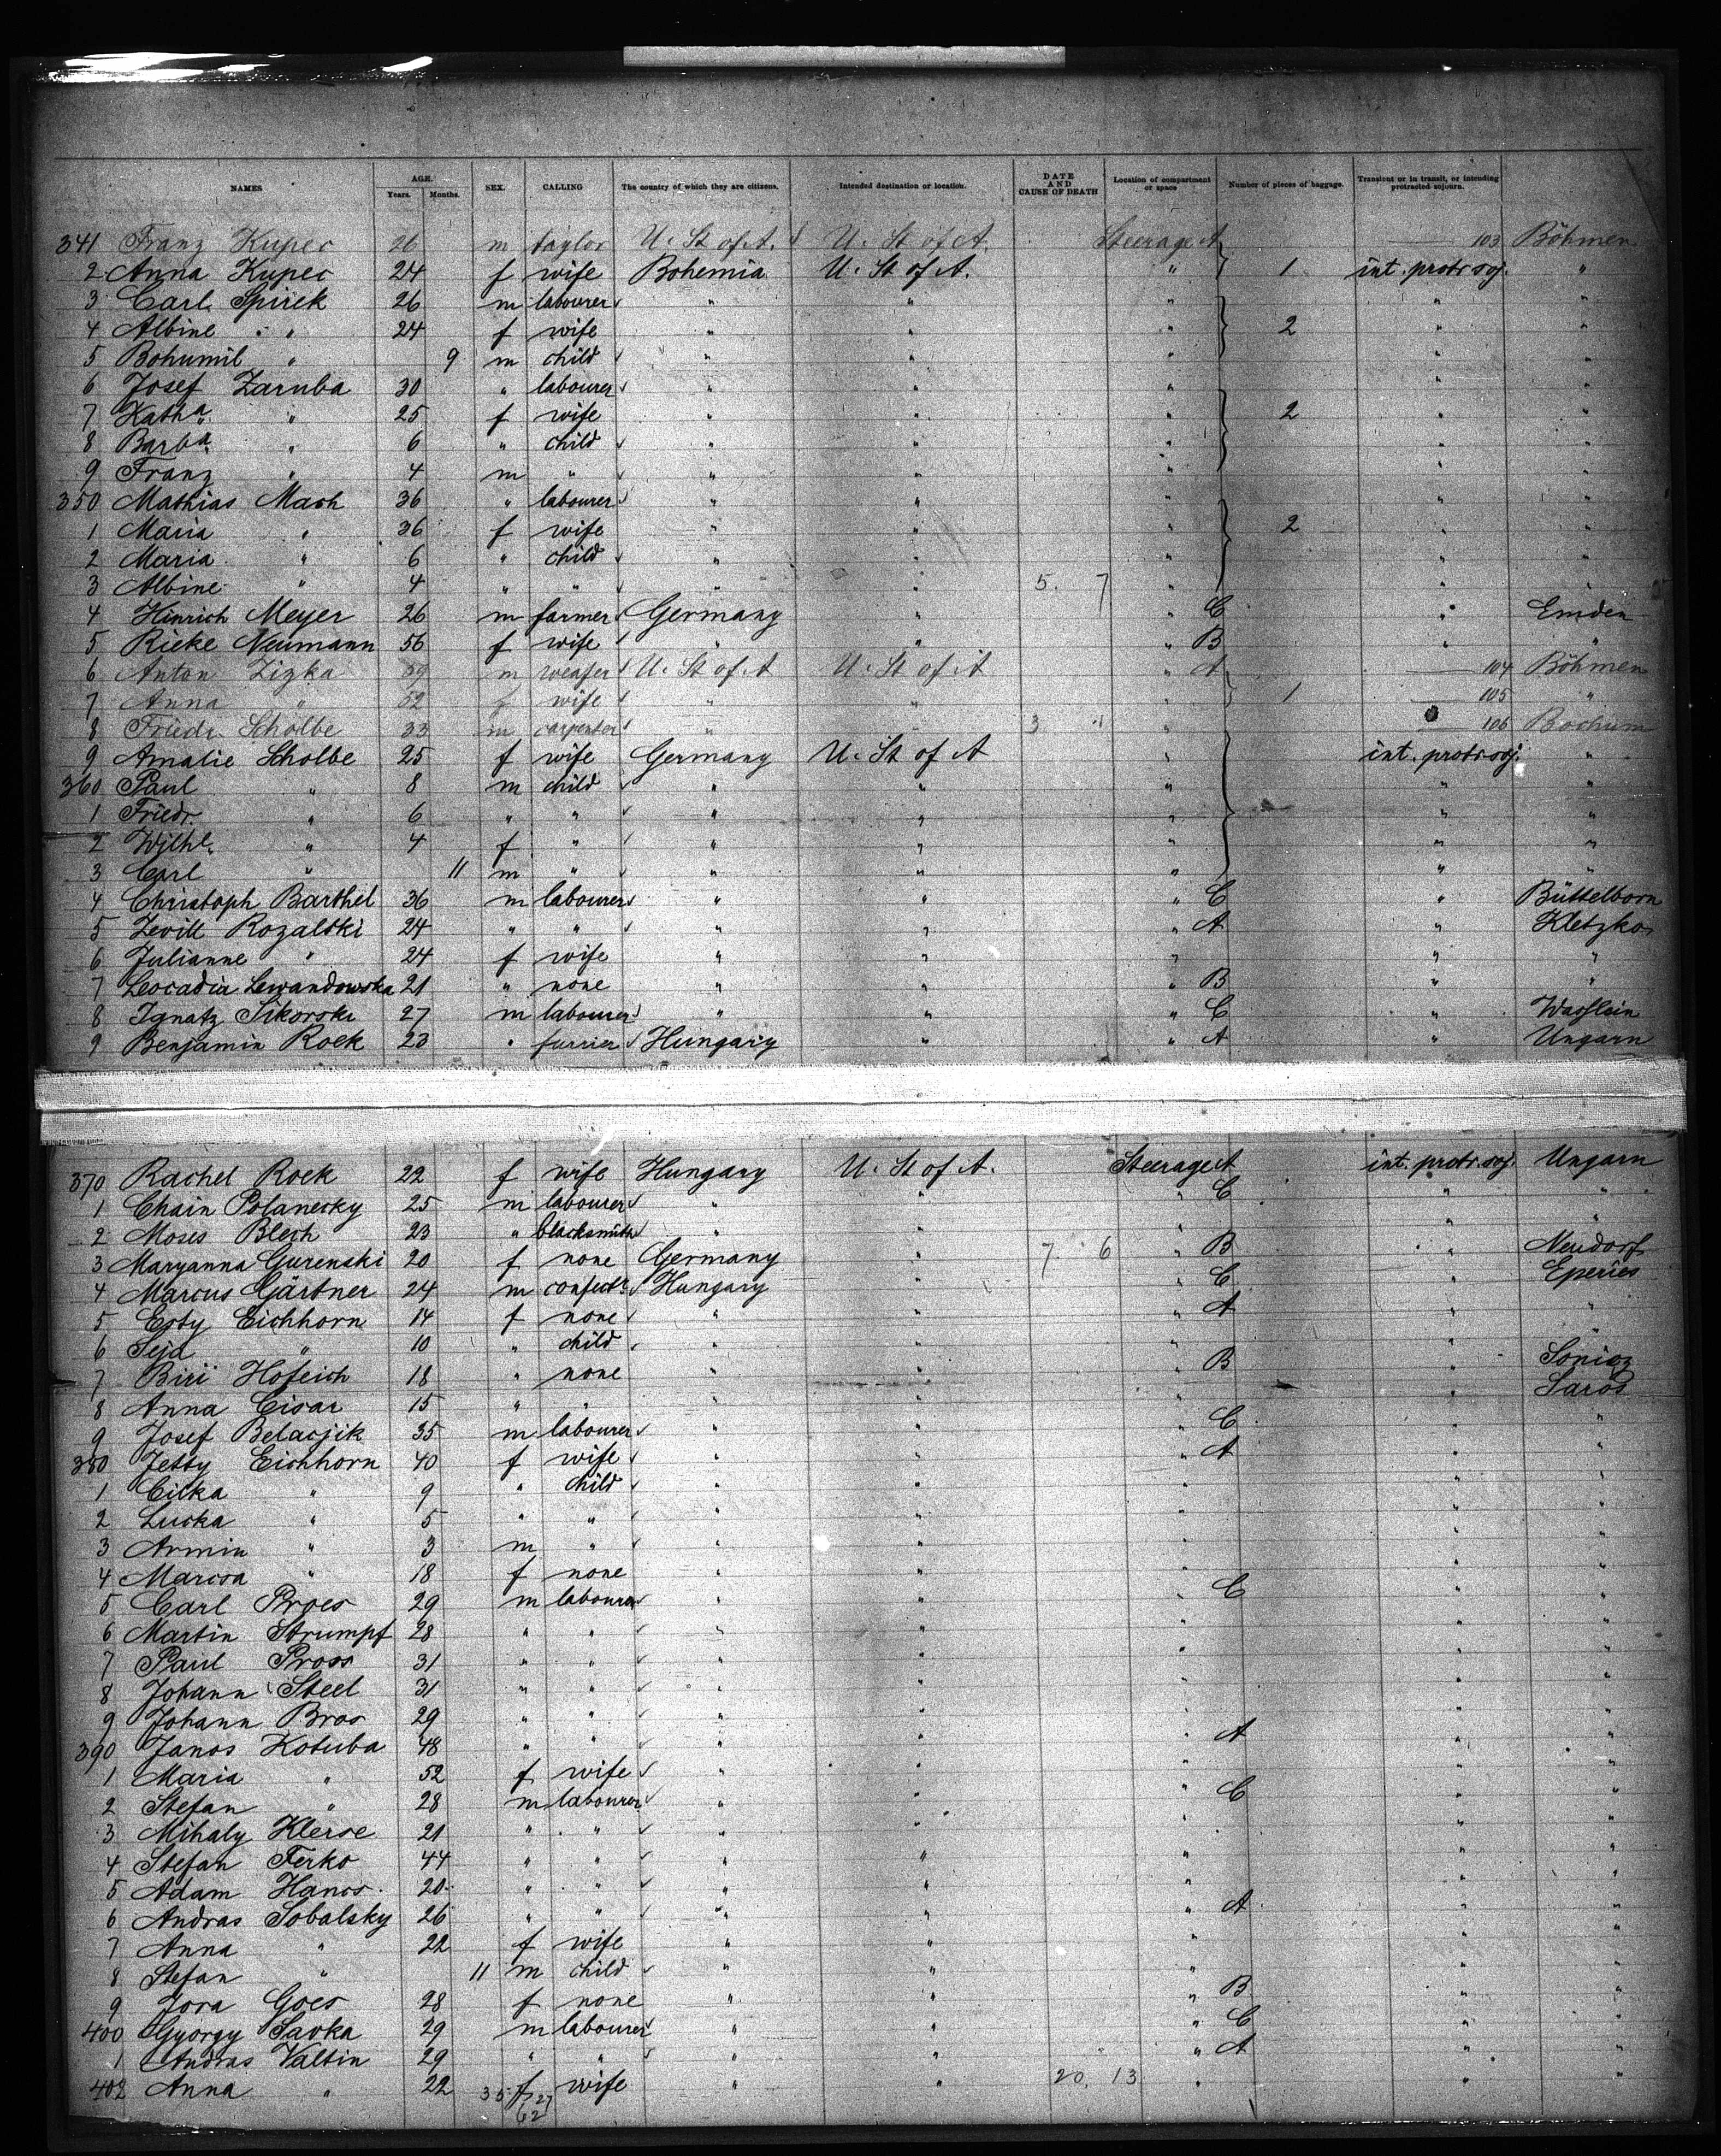 NAMES AGE. Years. Months. SEX. CALLING The country of which they are citizens. Intended destination or location. DATE AND CAUSE OF DEATH Location of compartment or space Number of pieces of baggage. Transient or in transit, or intending protracted sojourn.
341 Franz Kupec 26 m taylor U. St of A. U. St of A. Steerage A 103 Böhmen
2 Anna Kupec 24 f wife Bohemia U. St of A. " 1 int. protr. soj. "
3 Carl Spirek 26 m labourer " " " " "
4 Albine " 24 f wife " " " 2 " "
5 Bohumil " 9 m child " " " " "
6 Josef Zaruba 30 " labourer " " " " "
7 Katha " 25 f wife " " " 2 " "
8 Barba " 6 " child " " " " "
9 Franz " 4 m " " " " " "
350 Mathias Mach 36 " labourer " " " " "
1 Maria " 36 f wife " " " 2 " "
2 Maria " 6 " child " " " " "
3 Albine " 4 " " " " 5. 7 " " "
4 Hinrich Meyer 26 m farmer Germany " " C " Emden
5 Rieke Neumann 56 f wife " " " B " "
6 Anton Zizka 59 m U. St of A U. St of A " A 104 Böhmen
7 Anna " 52 f wife " " " 1 105 "
8 Friedr. Scholbe 33 m carpenter " " 3 1 " 106 Bochum
9 Amalie Scholbe 25 f wife Germany U. St of A " int. protr. soj. "
360 Paul " 8 m child " " " " "
1 Friedr. " 6 " " " " " " "
2 Wilhl. " 4 f " " " " " "
3 Carl " 11 m " " " " " "
4 Christoph Barthel 36 m labourer " " " C " Büttelborn
5 Rozaltki 24 " " " " " A " Kletzko
6 Julianne " 24 f wife " " " " "
7 Leocadia Lewandowska 21 " none " " " B " "
8 Ignatz Sikorski 27 m labourer " " " C "
9 Benjamin Roek 23 " furrier Hungary " " A " Ungarn
370 Rachel Roek 22 f wife Hungary U. St of A. Steerage A int. protr. soj. Ungarn
1 Chain Polanecky 25 m labourer " " " C " "
2 Moses Blech 23 " blacksmith " " " " "
3 Maryanna Gurenski 20 f none Germany " 7. 6 " B " Neudorf
4 Marcus Gärtner 24 m confectr. Hungary " " C " Eperies
5 Esty Eichhorn 14 f none " " " A " "
6 Seja " 10 " child " " " " "
7 Biri Hofeich 18 " none " " " B "
8 Anna Cisar 15 " " " " " " Saros
9 Josef Belacjik 35 m labourer " " " C " "
380 Jetty Eichhorn 40 f wife " " " A " "
1 Cilka " 9 " child " " " " "
2 Lucka " 5 " " " " " " "
3 Armin " 3 m " " " " " "
4 Marcsa " 18 f none " " " " "
5 Carl Proes 29 m labourer " " " C " "
6 Martin Strumpf 28 " " " " " " "
7 Paul Pross 31 " " " " " " "
8 Johann Steel 31 " " " " " " "
9 Johann Bros 29 " " " " " " "
390 Janos Kotuba 48 " " " " " A " "
1 Maria " 52 f wife " " " " "
2 Stefan " 28 m labourer " " " C " "
3 Mihaly Klerse 21 " " " " " " "
4 Stefan Ferko 44 " " " " " " "
5 Adam Hancs 20 " " " " " " "
6 Andras Sobalsky 26 " " " " " A " "
7 Anna " 22 f wife " " " " "
8 Stefan " 11 m child " " " " "
9 Jora Goes 28 f none " " " B " "
400 Gyorgy Savka 29 m labourer " " " C " "
1 Andras Valtin 29 " " " " " A " "
402 Anna " 22 f wife " " 20. 13 " " "
35 27
62